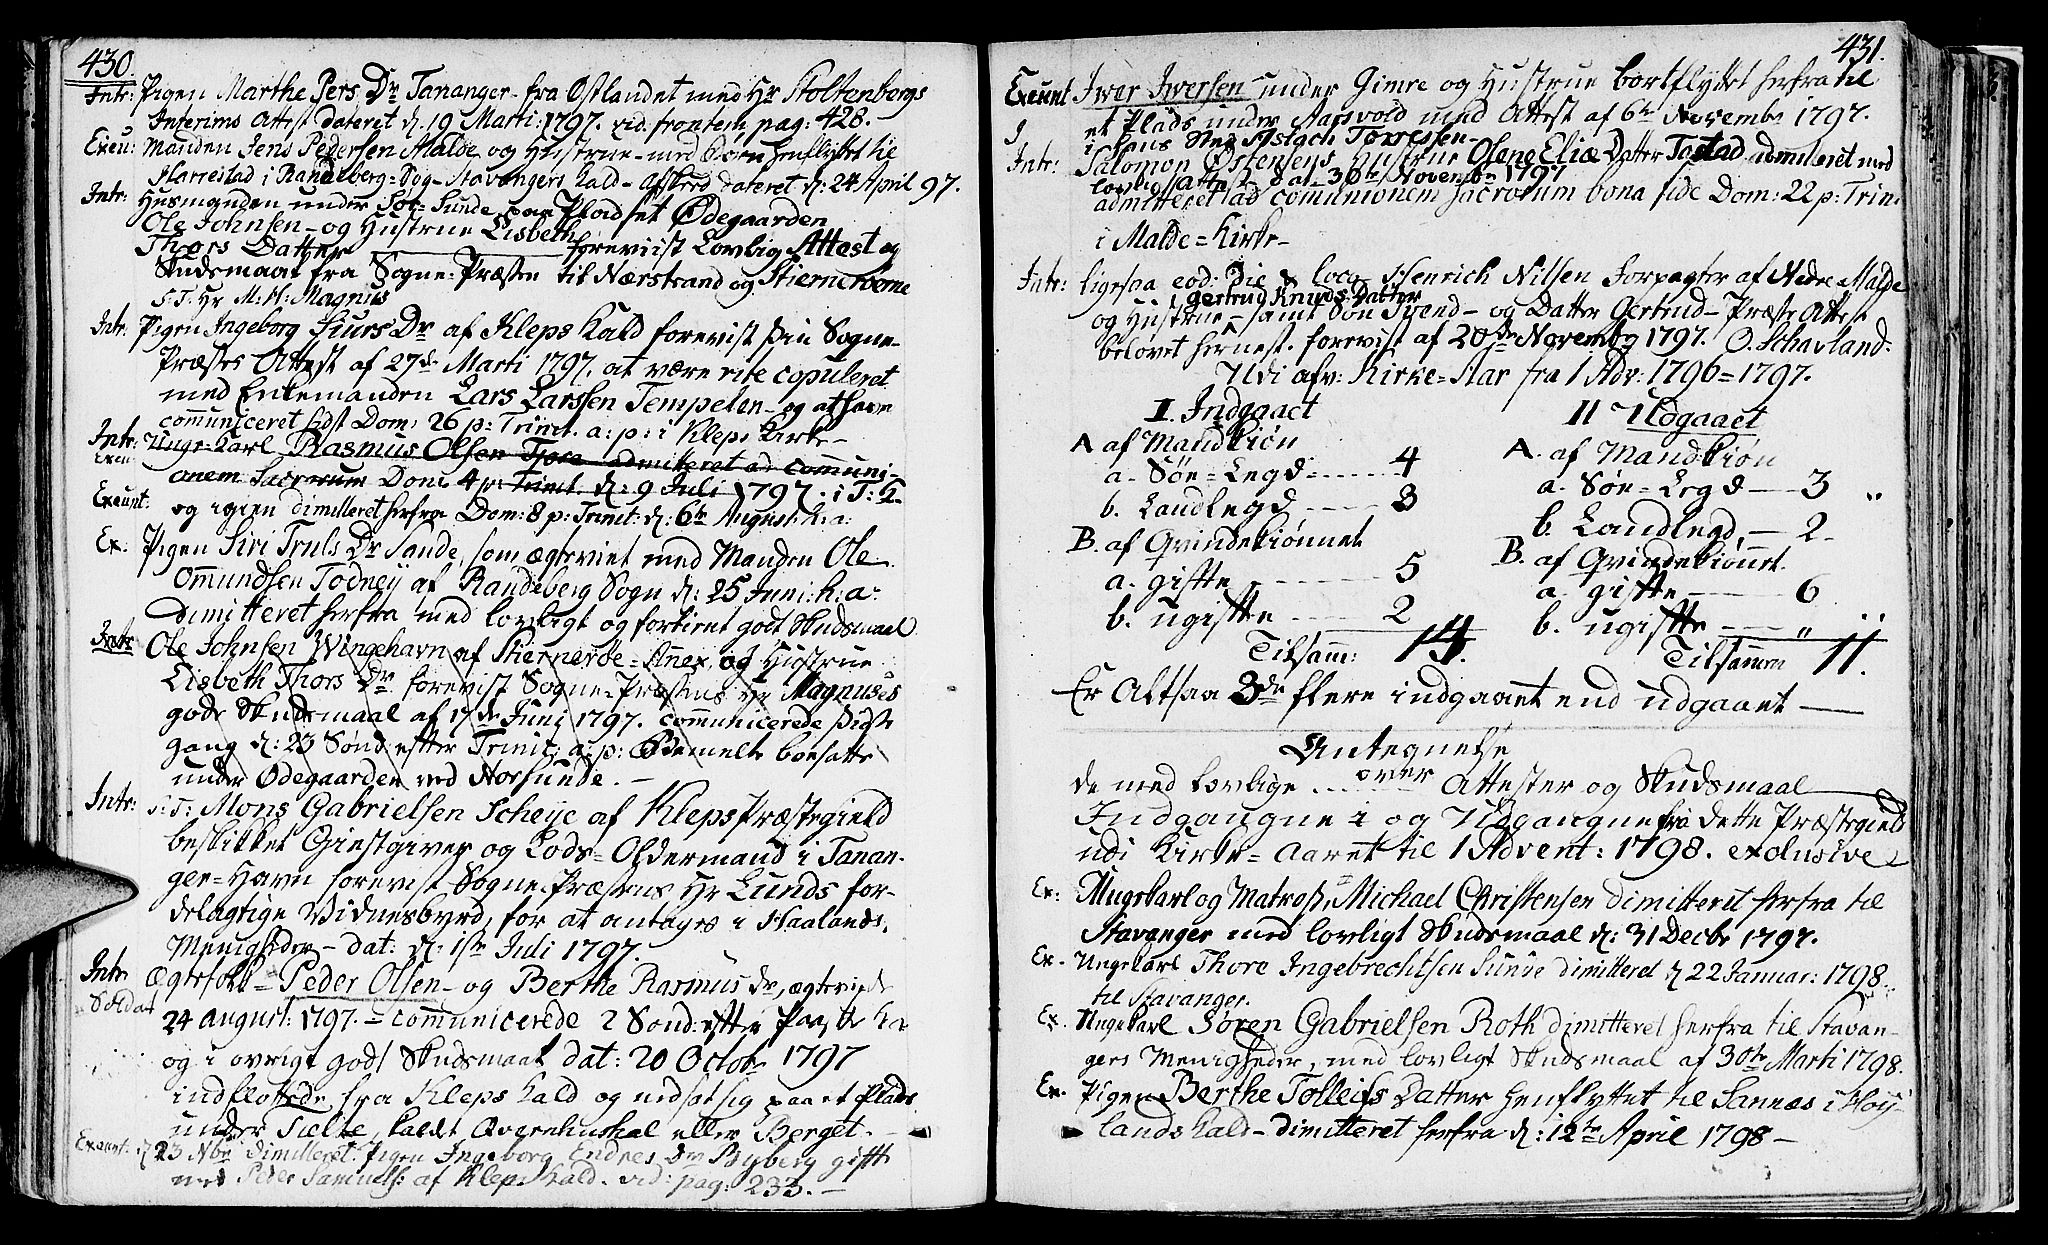 430.
Intr: Pigen Marthe Pers Dr Tananger fra Østlandet med Hr Stoltenbergs
Interims Attest dateret d. 19 Marti: 1797. vid. frontem pag: 428.
Exeu: Manden Jens Pedersen Malde og Hustrue med Børn henflyttet til
Harrestad i Randeberg=Sogn Stavangers Kald - Afskeed dateret d: 24 April 97.
Intr: Husmanden under Sør=Sunde paa Pladset Ødegaarden
Ole Johnsen og Hustrue Lisbeth
Thors Datter foreviist Lovlig Attest og
Skudsmaal fra Sogne=Præsten til Nærstrand og Stierneröerne
S:T: Hr M: H: Magnus
Intr: Pigen Ingeborg Siurs Dr af Kleps Kald forevist sin Sogne
Præstes Attest af 27de Marti 1797. at være rite copuleret
med Enkemanden Lars Larssen Tempelen og at have
communiceret sidst Dom: 26 p: Trinit. a: p: i Kleps Kirke
Intr: Unge=Karl Rasmus Olsen Tjora admitteret ad communi-
onem Sacrorum Dom: 4 p: Trinit. d: 9 Juli 1797. i T: K.
Exeunt: og igien dimitteret herfra Dom: 8 p: Trinit: d: 6te August: h: a:
Ex: Pigen Siri Truls Dr Sande, som ægteviet med Manden Ole
Ommundsen Todneÿ af Randeberg Sogn d: 25 Juni: h: a:
dimitteret herfra med lovligt og fortient godt Skudsmaal
Intr: Ole Johnsen Wingehavn af Stiernerøe=Anex, og Hustrue
Lisbeth Thors Dr forevist Sogne=Præstens Hr Magnuses
gode Skudsmaal af 17de Junj 1797. communicerede sidste
gang d: 23 Sønd: efter Trinit. a: p: Bemelte boesatte
under Ødegaarden ved Norsunde.
Intr: S: T: Mons Gabrielsen Scheÿe af Kleps Præstegield
beskikket Giestgiver og Lods=Oldermand i Tanan-
ger=Havn forevist Sogne=Præstens Hr Lunds for-
delagtige Vidnesbyrd, for at antages i Haalands
Menigheder - dat: d: 1ste Juli 1797.
Intr: Ægtefolk - Peder Olsen - og Berthe Rasmus Dr, ægteviede
Soldat 24 August: 1797. - communicerede 2 Sønd: efter Paaske h: a:
og i øvrigt godt Skudsmaal dat: 20 Octobr 1797
indfløttede fra Kleps Kald og nedsat sig paa et Plads
under Tielte, kaldt Averenhushal eller Berget.
Exeunt: d 23 Nbr dimitteret Pigen Ingeborg Endres Dr Byberg gifte
med Peder Samuels: af Kleps Kald. vid: pag: 233.
431.
Exeunt Iwer Iwersen under Gimre og Hustrue bortflyttet herfra til
et Plads under Aarsvold med Attest af 6te Novembr 1797.
I i hans Sted Aslach Torresen
Intr: Salomon Østensens Hustrue Olene Eliæ Datter Tastad dimiteret med
lovlig Attest dat 30te Novembr 1797
admitteret ad communionem sacrorum bona fide Dom: 22 p: Trin:
i Malde=Kirke
Intr: ligesaa eod: die & loco Henrich Nilsen Forpagter af Nedre Malde
Gertrud Knuds Datter
og Hustrue - samt Søn Svend - og Datter Gertrud - Præste Attest
belovet hernest. forevist af 20de Novembr 1797. O. Schavland.
Udi afv: Kirke=Aar fra 1 Adv: 1796=1797.
I. Indgaaet
A af Mandkiøn
a. Søe=Legd ----- 4
b. Landlegd ----- 3
B. af Qvindekiønnet
a. gifte ------ 5
b. ugifte ---- 2
Tilsamm: 14.
II Udgaaet
A. af Mandkiøn
a. Søe=Legd --- 3 "
b. Landlegd, - 2.
B. af Qvindekiønnet.
a. gifte ---- 6
b. ugifte ---- "
Tilsammen 11.
Er Altsaa 3de flere indgaaet end udgaaet ——
Antegnelse
over
de med lovlige ... Attester og Skudsmaal
Indgangne i og Udgangne fra dette Præstegield
udi Kirke=Aaret til 1 Advent: 1798. exclusive
Ex: Ungekarl og Matros, Michael Christensen dimitteret herfra til
Stavanger med lovligt Skudsmaal d: 31 Decbr 1797.
Ex. Ungekarl Thore Ingebrechtsen Sunde dimitteret d 22 Januar: 1798.
til Stavanger.
Ex. Ungekarl Søren Gabrielsen Roth dimitteret herfra til Stavan-
gers Menigheder, med lovligt Skudsmaal af 30te Marti 1798.
Ex. Pigen Berthe Tolleifs Datter henflyttet til Sannes i Høy-
lands Kald - dimitteret herfra d: 12te April 1798 -